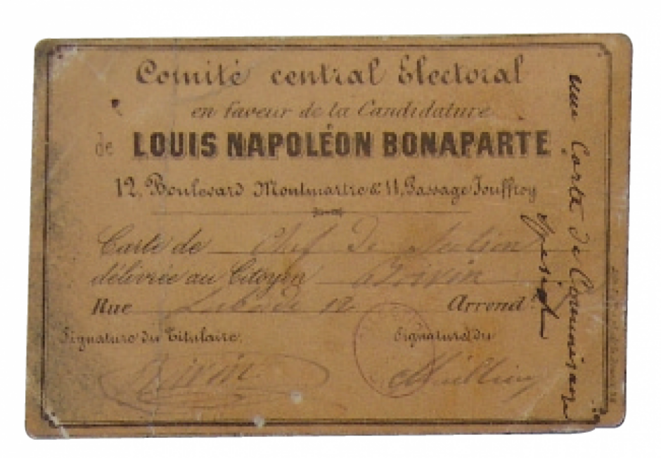 Comité central Électoral
en faveur de la Candidature
de LOUIS NAPOLÉON BONAPARTE
12, Boulevard Montmartre & 11, Passage Jouffroy
Carte de Chef de Section
délivrée au Citoyen Boivin
Rue 12 Arrond.
Signature du Titulaire, Signature du
Boivin
une Carte de Commissaire